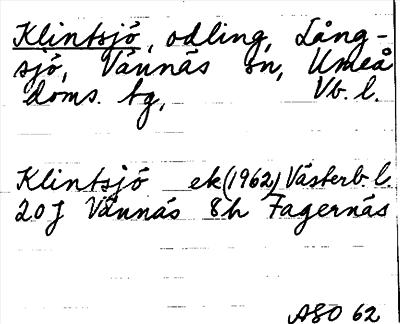 Klintsjö, odling, Lång-
sjö, Vännäs sn, Umeå
doms. tg, Vb. l.
Klintsjö ek (1962) Västerb. l.
20J Vännäs 8h Fagernäs
ASO 62